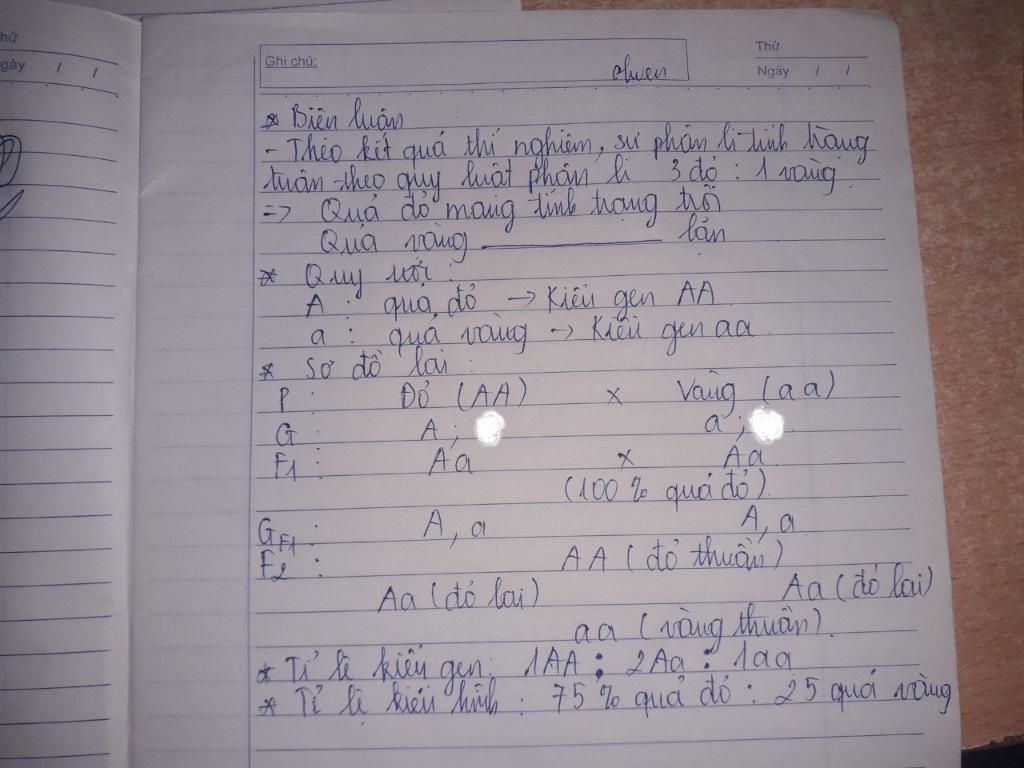 Thứ
Ngày / /
Ghi chú:
Thứ
Ngày / /
* Biện luận
- Theo kết quả thí nghiệm, sự phân li tính trạng
tuân theo quy luật phân li 3 đỏ : 1 vàng
=> Quả đỏ mang tính trạng trội
Quả vàng ———— lặn
* Quy ước :
A : quả đỏ → Kiểu gen AA
a : quả vàng → Kiểu gen aa
* Sơ đồ lai :
P : Đỏ (AA) x Vàng (aa)
G : A ; a ;
F1 : Aa x Aa
(100 % quả đỏ)
GF1 : A, a A, a
F2 : AA (đỏ thuần)
Aa (đỏ lai) Aa (đỏ lai)
aa (vàng thuần)
* Tỉ lệ kiểu gen: 1AA : 2Aa : 1aa
* Tỉ lệ kiểu hình : 75 % quả đỏ : 25 quả vàng